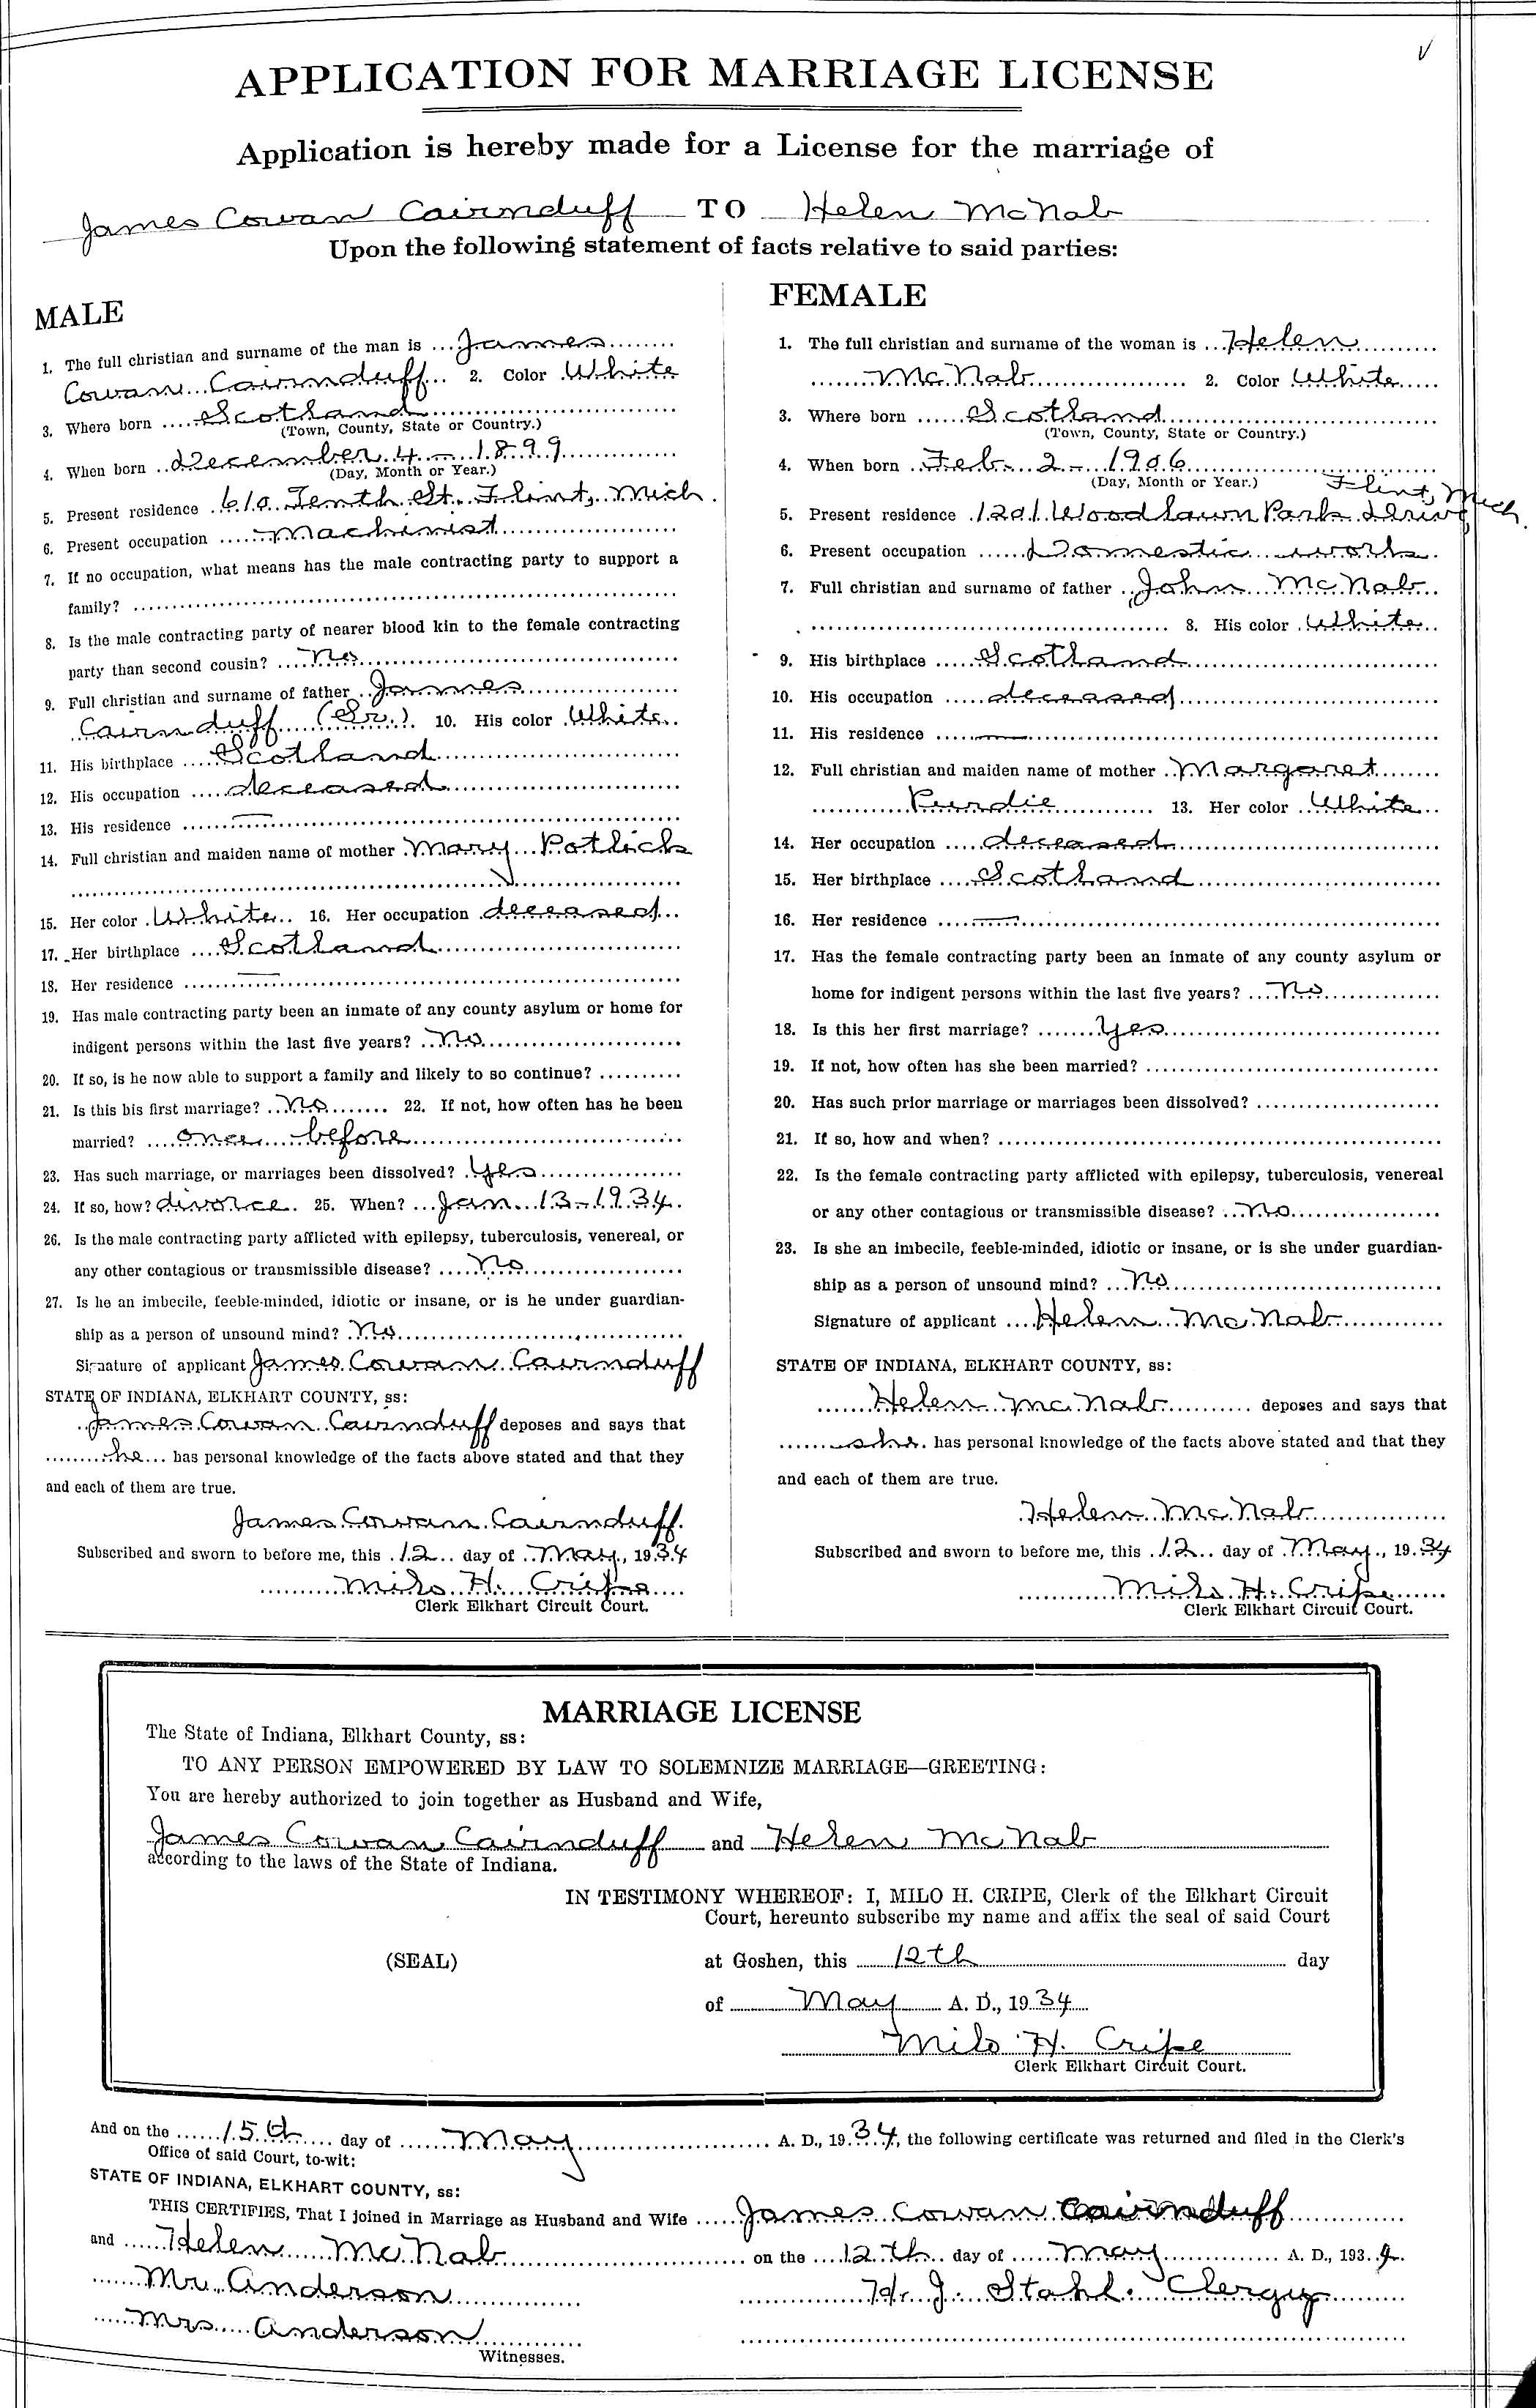 APPLICATION FOR MARRIAGE LICENSE
Application is hereby made for a License for the marriage of
James Cowan Cairnduff TO Helen McNab
Upon the following statement of facts relative to said parties:
MALE
1. The full christian and surname of the man is James
Cowan Cairnduff 2. Color White
3. Where born Scotland
(Town, County, State or Country.)
4. When born December 4 - 1899
(Day, Month or Year.)
5. Present residence 610 Tenth St. Flint, Mich.
6. Present occupation Machinist
7. If no occupation, what means has the male contracting party to support a
family?
8. Is the male contracting party of nearer blood kin to the female contracting
party than second cousin? No
9. Full christian and surname of father James
Cairnduff (Sr.) 10. His color White
11. His birthplace Scotland
12. His occupation deceased
13. His residence —
14. Full christian and maiden name of mother Mary
15. Her color White 16. Her occupation deceased
17. Her birthplace Scotland
18. Her residence —
19. Has male contracting party been an inmate of any county asylum or home for
indigent persons within the last five years? No
20. If so, is he now able to support a family and likely to so continue?
21. Is this his first marriage? No 22. If not, how often has he been
married? once before
23. Has such marriage, or marriages been dissolved? Yes
24. If so, how? divorce. 25. When? Jan 13-1934.
26. Is the male contracting party afflicted with epilepsy, tuberculosis, venereal, or
any other contagious or transmissible disease? No
27. Is he an imbecile, feeble-minded, idiotic or insane, or is he under guardian-
ship as a person of unsound mind? No
Signature of applicant James Cowan Cairnduff
STATE OF INDIANA, ELKHART COUNTY, ss:
James Cowan Cairnduff deposes and says that
he has personal knowledge of the facts above stated and that they
and each of them are true.
James Cowan Cairnduff.
Subscribed and sworn to before me, this 12 day of May, 1934
Milo H. Cripe
Clerk Elkhart Circuit Court.
FEMALE
1. The full christian and surname of the woman is Helen
McNab 2. Color White
3. Where born Scotland
(Town, County, State or Country.)
4. When born Feb. 2 - 1906
(Day, Month or Year.)
Flint, Mich.
5. Present residence 1201 Woodlawn Park Drive,
6. Present occupation Domestic work
7. Full christian and surname of father John McNab
8. His color White
9. His birthplace Scotland
10. His occupation deceased
11. His residence —
12. Full christian and maiden name of mother Margaret
Purdie 13. Her color White
14. Her occupation deceased
15. Her birthplace Scotland
16. Her residence —
17. Has the female contracting party been an inmate of any county asylum or
home for indigent persons within the last five years? No
18. Is this her first marriage? Yes
19. If not, how often has she been married?
20. Has such prior marriage or marriages been dissolved?
21. If so, how and when?
22. Is the female contracting party afflicted with epilepsy, tuberculosis, venereal
or any other contagious or transmissible disease? No
23. Is she an imbecile, feeble-minded, idiotic or insane, or is she under guardian-
ship as a person of unsound mind? No
Signature of applicant Helen McNab
STATE OF INDIANA, ELKHART COUNTY, ss:
Helen McNab deposes and says that
she has personal knowledge of the facts above stated and that they
and each of them are true.
Helen McNab
Subscribed and sworn to before me, this 12 day of May, 1934
Milo H. Cripe
Clerk Elkhart Circuit Court.
MARRIAGE LICENSE
The State of Indiana, Elkhart County, ss:
TO ANY PERSON EMPOWERED BY LAW TO SOLEMNIZE MARRIAGE—GREETING:
You are hereby authorized to join together as Husband and Wife,
James Cowan Cairnduff and Helen McNab
according to the laws of the State of Indiana.
IN TESTIMONY WHEREOF: I, MILO H. CRIPE, Clerk of the Elkhart Circuit
Court, hereunto subscribe my name and affix the seal of said Court
(SEAL) at Goshen, this 12th day
of May A. D., 1934
Milo H. Cripe
Clerk Elkhart Circuit Court.
And on the 15th day of May A. D., 1934, the following certificate was returned and filed in the Clerk's
Office of said Court, to-wit:
STATE OF INDIANA, ELKHART COUNTY, ss:
THIS CERTIFIES, That I joined in Marriage as Husband and Wife James Cowan Cairnduff
and Helen McNab on the 12th day of May A. D., 1934.
Mr. Anderson H. J. Stahl. Clergy
Mrs. Anderson
Witnesses.